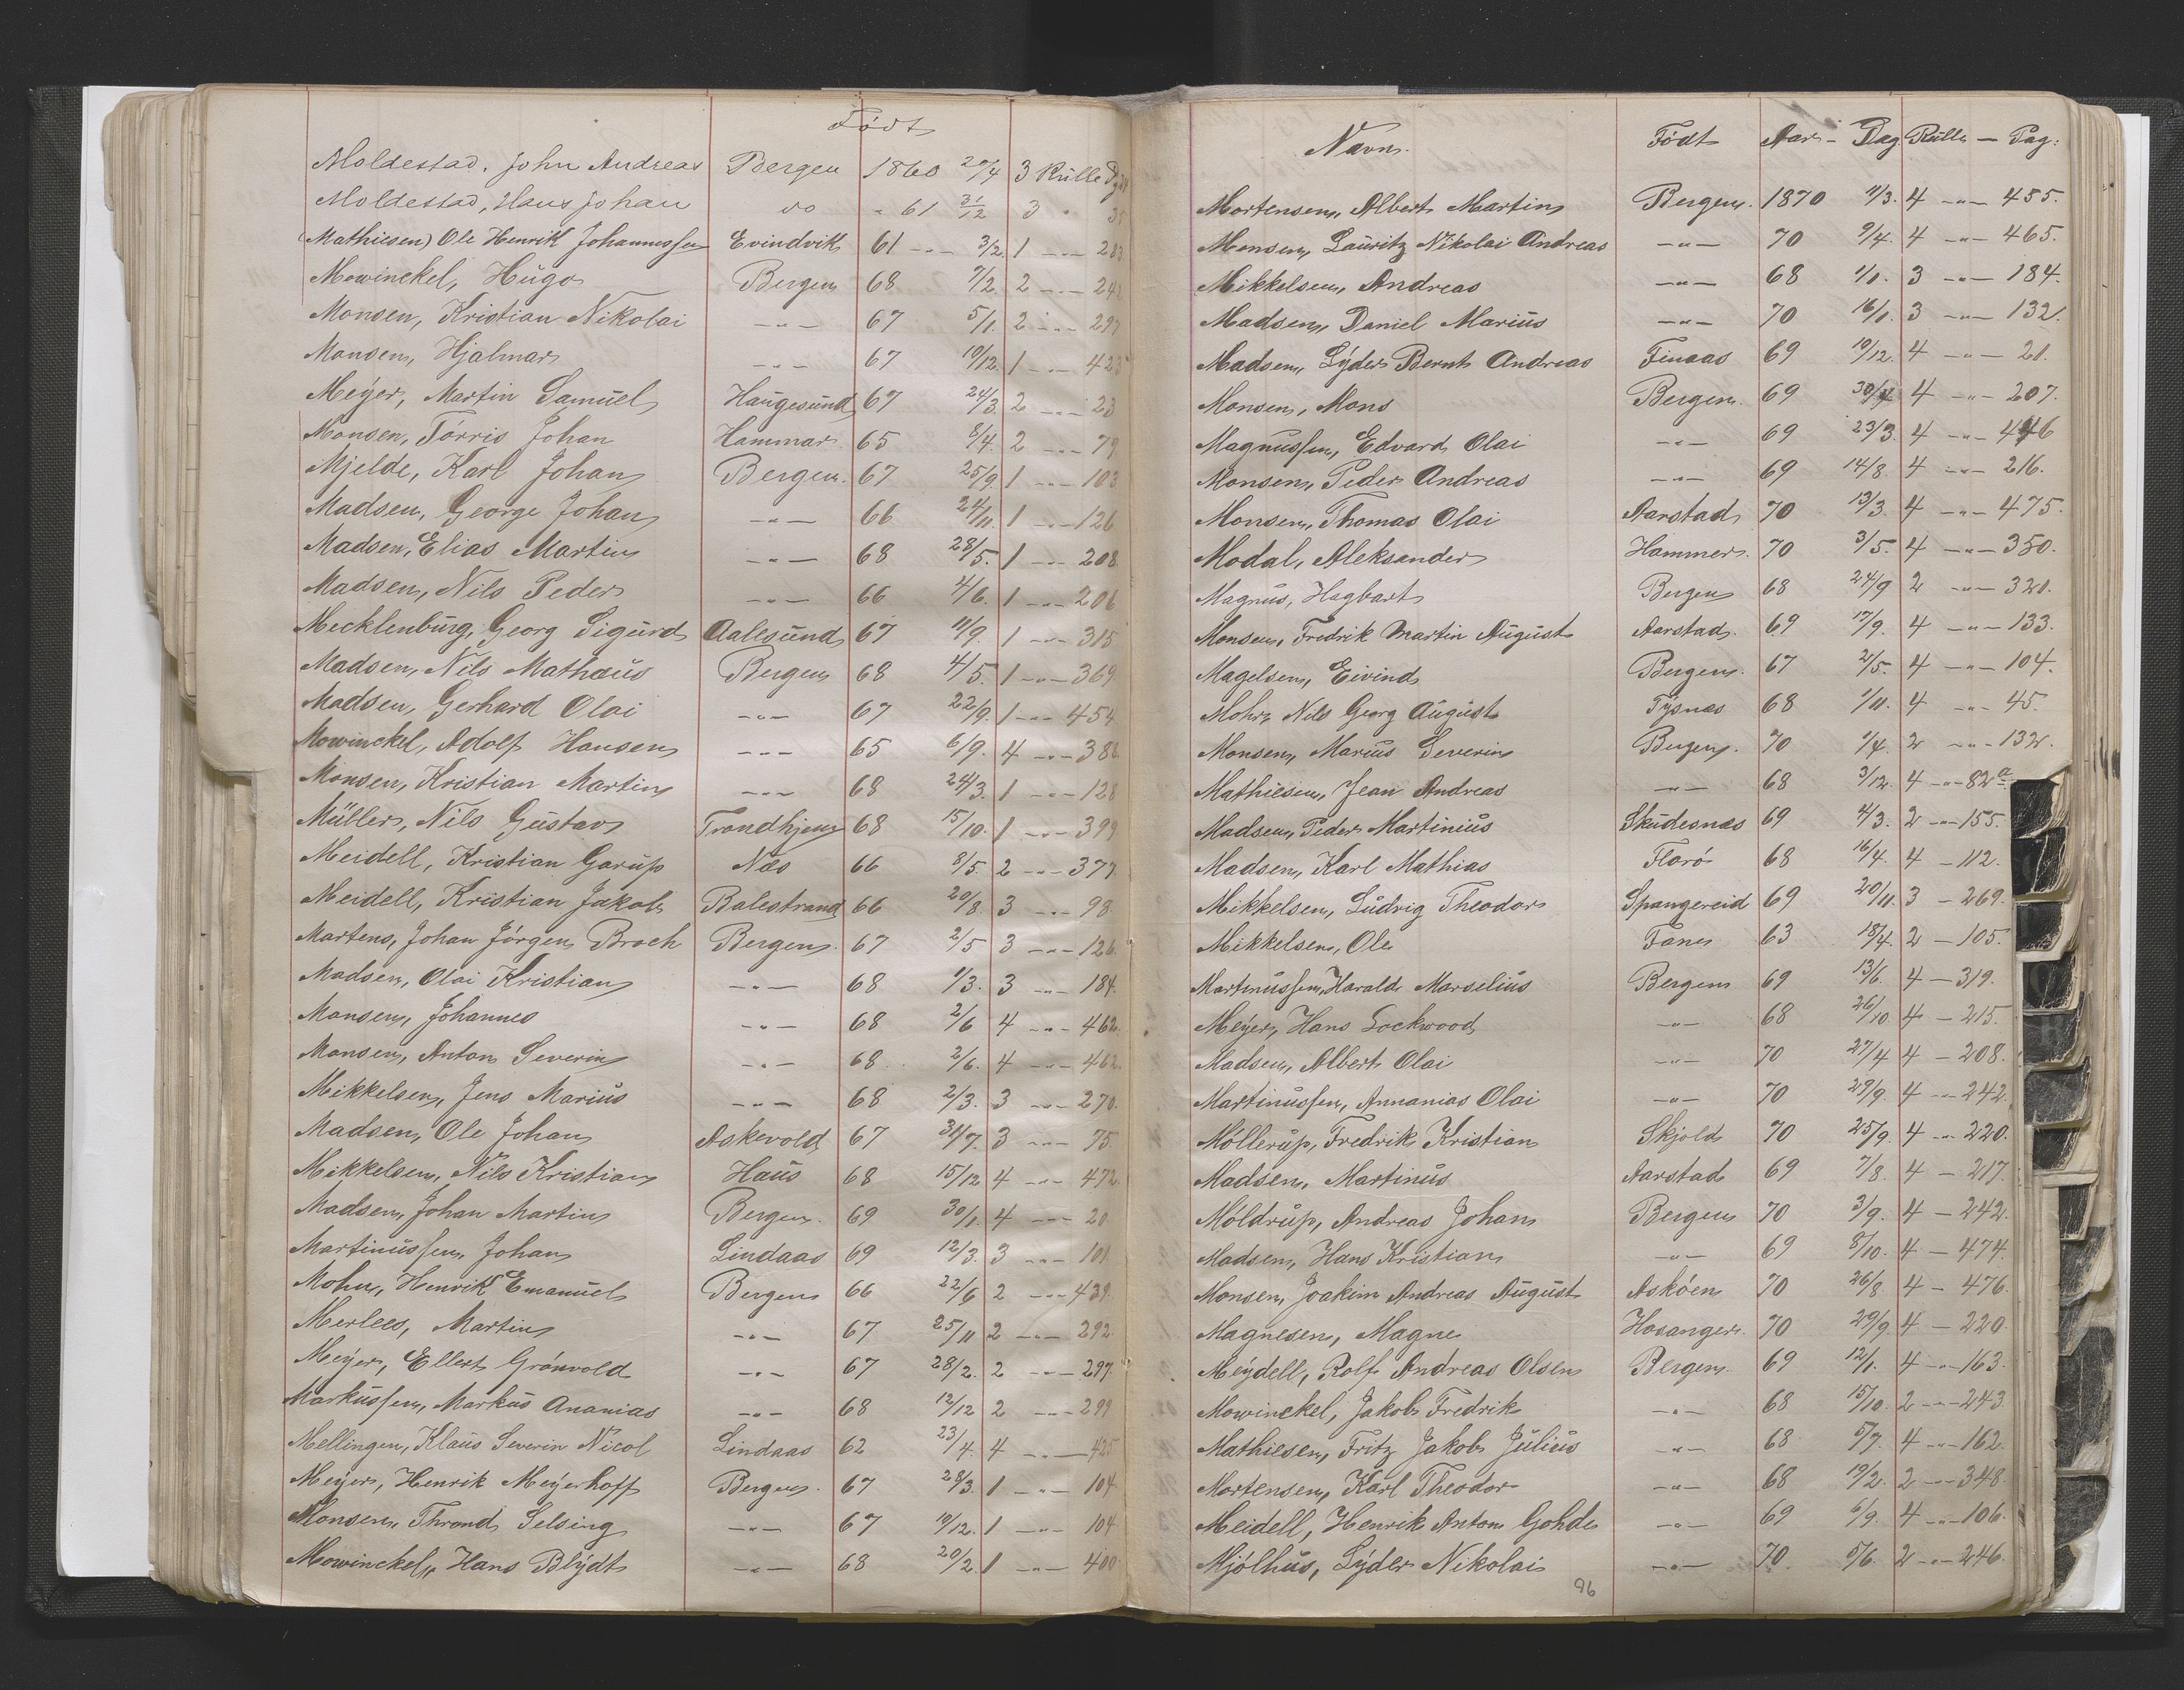 Født
Moldestad, John Andreas Bergen 1860 20/4 3 Rulle
Moldestad, Hans Johan do " 61 31/12 3 "
(Mathiesen) Ole Henrik Johannessen Evindvik 61 -"- 3/2 1 -"- 283
Mowinckel, Hugo Bergen 68 7/2 2 -"- 242
Monsen, Kristian Nikolai -"- 67 5/1. 2 -"- 297
Monsen, Hjalmar -"- 67 10/12. 1 -"- 423
Meyer, Martin Samuel Haugesund 67 24/3. 2 -"- 23
Monsen, Tørris Johan Hammar 65 8/4. 2 -"- 79
Mjelde, Karl Johan Bergen. 67 25/9. 1 -"- 103
Madsen, George Johan -"- 66 24/11. 1 -"- 126
Madsen, Elias Martin -"- 68 28/5. 1 -"- 208
Madsen, Nils Peder -"- 66 4/6. 1 -"- 206
Mecklenburg, Georg Sigurd Aalesund 67 11/9 1 -"- 315
Madsen, Nils Mathæus Bergen 68 4/5. 1 -"- 369
Madsen, Gerhard Olai -"- 67 22/9. 1 -"- 454
Mowinckel, Adolf Hansen -"- 65 6/9. 4 -"- 386
Monsen, Kristian Martin -"- 68 24/3. 1 -"- 128
Müller, Nils Gustav Trondhjem 68 15/10. 1 -"- 399
Meidell, Kristian Garup Næs 66 8/5. 2 -"- 377
Meidell, Kristian Jakob Balestrand 66 20/8. 3 -"- 98
Martens, Johan Jørgen Broch Bergen. 67 2/5 3 -"- 126.
Madsen, Olai Kristian -"- 68 1/3. 3 -"- 184.
Monsen, Johannes -"- 68 2/6 4 -"- 462.
Monsen, Anton Severin -"- 68 2/6. 4 -"- 462.
Mikkelsen, Jens Marius -"- 68 2/3. 3 -"- 270.
Madsen, Ole Johan Askevold 67 31/7. 3 -"- 75.
Mikkelsen, Nils Kristian Haus 68 15/12 4 -"- 472.
Madsen, Johan Martin Bergen. 69 30/1. 4 -"- 20
Martinussen, Johan Lindaas 69 12/3. 3 -"- 101
Mohn, Henrik Emanuel Bergen 66 22/6 2 -"- 439.
Merlees, Martin -"- 67 25/11 2 -"- 292.
Meyer, Ellert Grønvold -"- 67 28/2. 2 -"- 297.
Markussen, Markus Ananias -"- 68 12/12 2 -"- 299
Mellingen, Klaus Severin Nicol Lindaas 62 23/4. 4 -"- 425
Meyer, Henrik Meyerhoff Bergen. 67 28/3. 1 -"- 104
Monsen, Thrond Selsing -"- 67 10/12. 1 -"- 104
Mowinckel, Hans Blydt -"- 68 20/2. 1 -"- 400
Navn. Født Aar - Dag Rulle - Pag:
Mortensen, Albert Martin Bergen. 1870 11/3. 4 -"- 455.
Monsen, Lauritz Nikolai Andreas -"- 70 9/4. 4 -"- 465.
Mikkelsen, Andreas -"- 68 1/1. 3 -"- 184.
Madsen, Daniel Marius -"- 70 16/1. 3 -"- 132.
Madsen, Lyder Bernt Andreas Finaas 69 19/12. 4 -"- 21.
Monsen, Mons Bergen. 69 30/4 4 -"- 207.
Magnussen, Edvard Olai -"- 69 23/3. 4 -"- 446
Monsen, Peder Andreas -"- 69 14/8. 4 -"- 216.
Monsen, Thomas Olai Aarstad 70 13/3. 4 -"- 475.
Modal, Aleksander Hammer. 70 3/5. 4 -"- 350.
Magnus, Hagbart Bergen 68 24/9 2 -"- 320.
Monsen, Fredrik Martin August Aarstad. 69 17/9. 4 -"- 133.
Magelsen, Eivind Bergen. 67 2/5. 4 -"- 104.
Mohr, Nils Georg August Tysnæs 68 1/11. 4 -"- 45.
Monsen, Marius Severin Bergen. 70 1/4. 2 -"- 132.
Mathiesen, Jean Andreas -"- 68 3/12. 4 -"- 82a
Madsen, Peder Martinius Skudesnæs 69 4/3. 2 -"- 155.
Madsen, Karl Mathias Florø 68 16/4. 4 - 112.
Mikkelsen, Ludvig Theodor Spangereid 69 20/11. 3 - 269.
Mikkelsen, Ole Fane 63 18/4. 2 - 105.
Martinussen, Harald Marselius Bergen 69 13/6. 4 - 319.
Meyer, Hans Lockwood -"- 68 26/10 4 - 215.
Madsen, Albert Olai -"- 70 27/4 4 - 208.
Martinussen, Annanias Olai -"- 70 29/9. 4 -"- 242.
Møllerup, Fredrik Kristian Skjold 70 25/9. 4 -"- 220.
Madsen, Martinus Aarstad 69 7/8. 4 - 217.
Møldrup, Andreas Johan Bergen 70 3/9. 4 - 242.
Madsen, Hans Kristian -"- 69 8/10. 4 - 474.
Monsen, Joakim Andreas August Askøen 70 26/8 4 - 476.
Magnesen, Magne Hosanger. 70 29/9. 4 - 220.
Meydell, Rolf Andreas Olsen Bergen. 69 12/1. 4 -"- 163.
Mowinckel, Jakob Fredrik -"- 68 15/10. 2 -"- 243.
Mathiesen, Fritz Jakob Julius -"- 68 5/7. 4 -"- 162.
Mortensen, Karl Theodor -"- 68 19/2. 2 -"- 348.
Meidell, Henrik Anton Gohde -"- 69 6/9. 4 -"- 106.
Mjølhus, Lyder Nikolai -"- 70 5/6. 2 -"- 246.
96